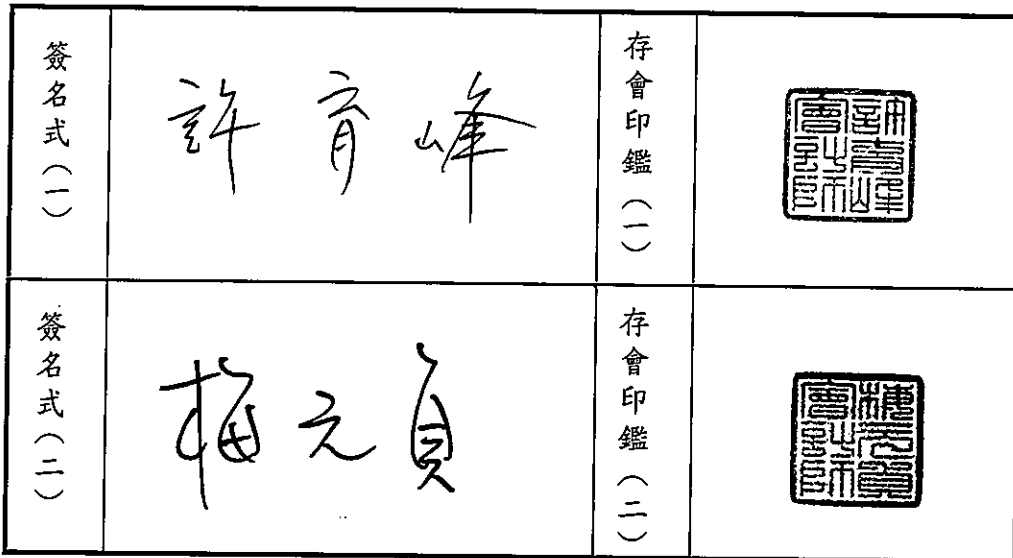 簽名式(一)
許育峰
存會印鑑(一)
許育峰會計師
簽名式(二)
梅元貞
存會印鑑(二)
梅元貞會計師